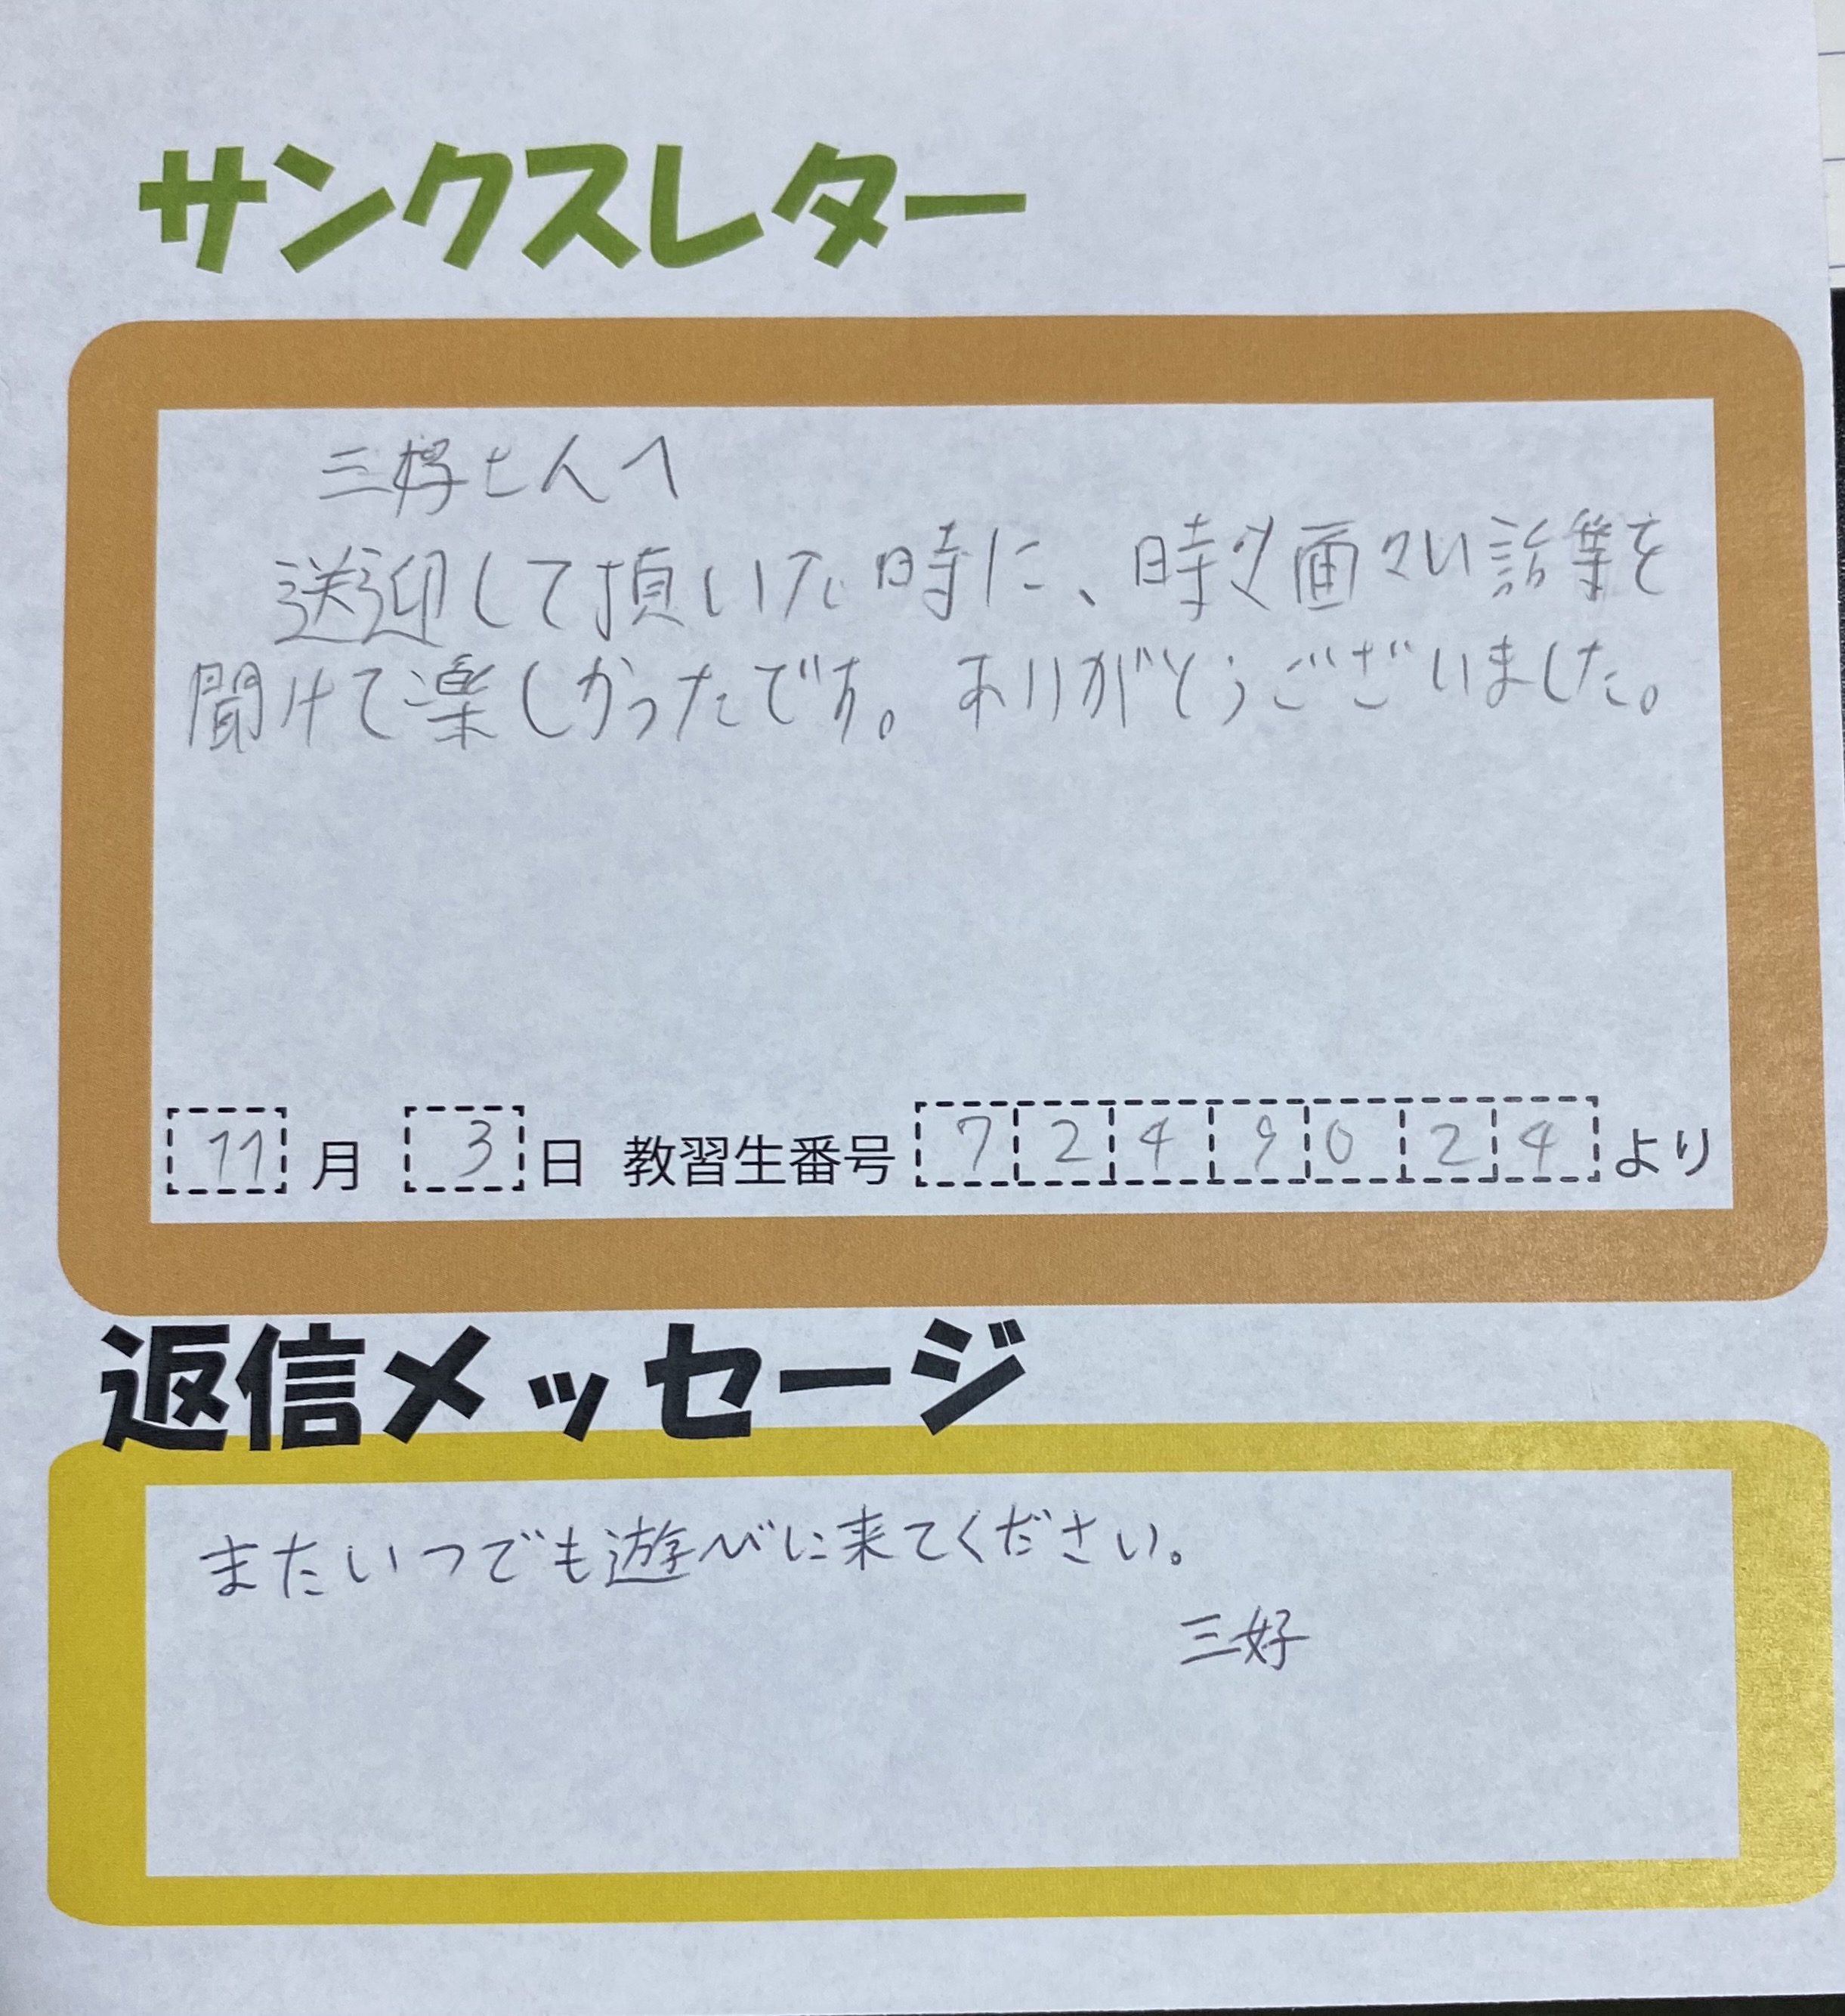 サンクスレター
三好さんへ
送迎して頂いた時に、時々面白い話等を
聞けて楽しかったです。ありがとうございました。
11月 3日 教習生番号 7249024より
返信メッセージ
またいつでも遊びに来てください。
三好